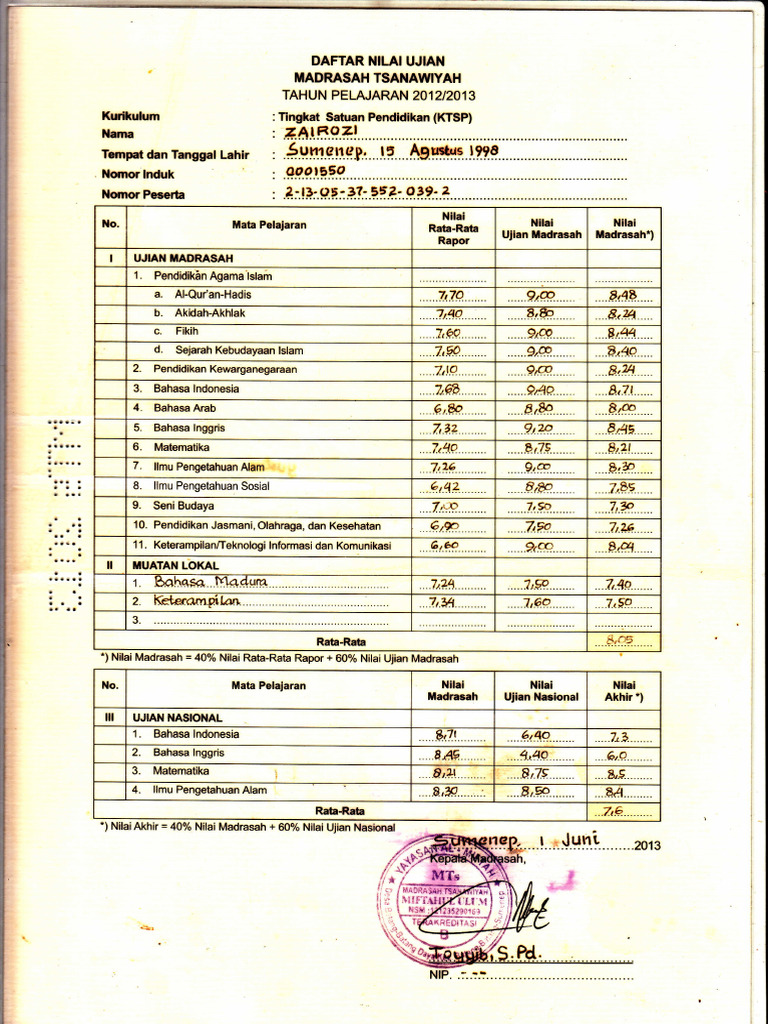 DAFTAR NILAI UJIAN
MADRASAH TSANAWIYAH
TAHUN PELAJARAN 2012/2013
Kurikulum : Tingkat Satuan Pendidikan (KTSP)
Nama : ZAIROZI
Tempat dan Tanggal Lahir : Sumenep. 15 Agustus 1998
Nomor Induk : 0001550
Nomor Peserta : 2-13-05-37-552-039-2
No. Mata Pelajaran Nilai Rata-Rata Rapor Nilai Ujian Madrasah Nilai Madrasah*)
I UJIAN MADRASAH
1. Pendidikan Agama Islam
a. Al-Qur'an-Hadis 7,70 9,00 8,48
b. Akidah-Akhlak 7,40 8,80 8,24
c. Fikih 7,60 9,00 8,44
d. Sejarah Kebudayaan Islam 7,50 9,00 8,40
2. Pendidikan Kewarganegaraan 7,10 9,00 8,24
3. Bahasa Indonesia 7,68 9,40 8,71
4. Bahasa Arab 6,80 8,80 8,00
5. Bahasa Inggris 7,32 9,20 8,45
6. Matematika 7,40 8,75 8,21
7. Ilmu Pengetahuan Alam 7,26 9,00 8,30
8. Ilmu Pengetahuan Sosial 6,42 8,80 7,85
9. Seni Budaya 7,00 7,50 7,30
10. Pendidikan Jasmani, Olahraga, dan Kesehatan 6,90 7,50 7,26
11. Keterampilan/Teknologi Informasi dan Komunikasi 6,60 9,00 8,04
II MUATAN LOKAL
1. Bahasa Madura 7,24 7,50 7,40
2. Keterampilan 7,34 7,60 7,50
3.
Rata-Rata 8,05
*) Nilai Madrasah = 40% Nilai Rata-Rata Rapor + 60% Nilai Ujian Madrasah
No. Mata Pelajaran Nilai Madrasah Nilai Ujian Nasional Nilai Akhir *)
III UJIAN NASIONAL
1. Bahasa Indonesia 8,71 6,40 7,3
2. Bahasa Inggris 8,45 4,40 6,0
3. Matematika 8,21 8,75 8,5
4. Ilmu Pengetahuan Alam 8,30 8,50 8,4
Rata-Rata 7,6
*) Nilai Akhir = 40% Nilai Madrasah + 60% Nilai Ujian Nasional
Sumenep. 1 Juni 2013
Kepala Madrasah,
MTs
MADRASAH TSANAWIYAH
MIFTAHUL ULUM
TERAKREDITASI
B
Toyyib, S.Pd.
NIP. ---
MTP 2013